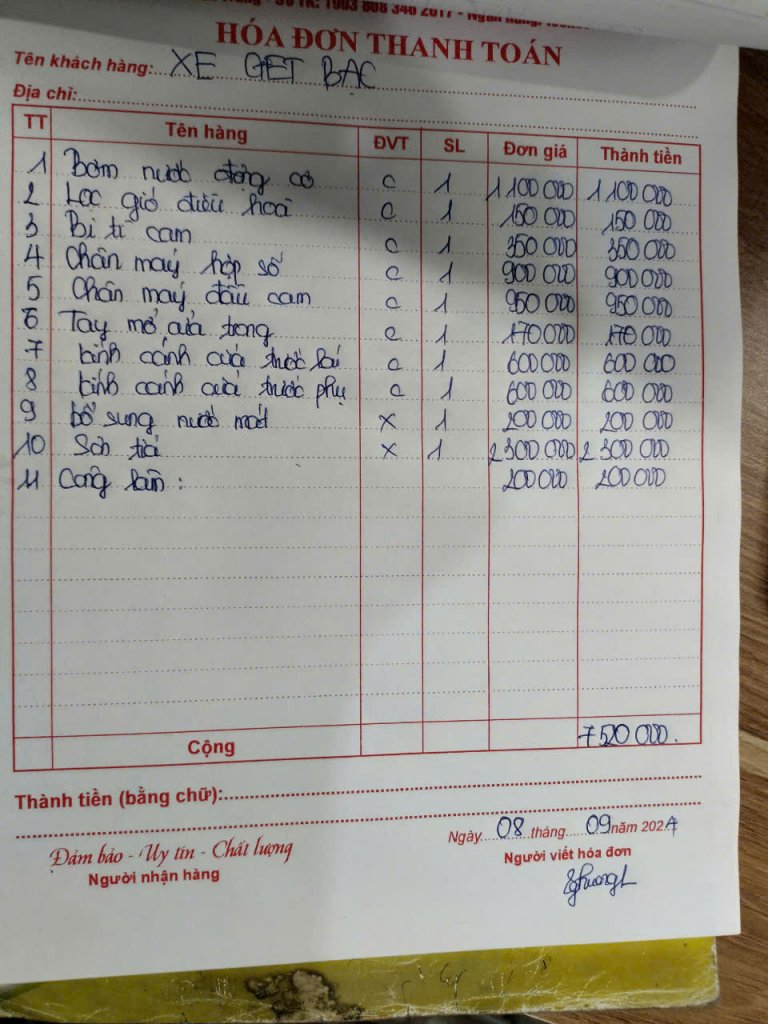 Số TK: 1903 808 346 2017 - Ngân hàng:
HÓA ĐƠN THANH TOÁN
Tên khách hàng: XE GET BẠC
Địa chỉ:
TT Tên hàng ĐVT SL Đơn giá Thành tiền
1 Bơm nước động cơ c 1 1 100 000 1 100 000
2 Lọc gió điều hoà c 1 150 000 150 000
3 Bi tì cam c 1 350 000 350 000
4 Chân máy hộp số c 1 900 000 900 000
5 Chân máy đầu cam c 1 950 000 950 000
6 Tay mở cửa trong c 1 170 000 170 000
7 kính cánh cửa trước lái c 1 600 000 600 000
8 kính cánh cửa trước phụ c 1 600 000 600 000
9 bổ sung nước mát x 1 200 000 200 000
10 Sơn x 1 2 300 000 2 300 000
11 Công làm : 200 000 200 000
Cộng 7 520 000.
Thành tiền (bằng chữ):
Ngày 08 tháng 09 năm 2024
Đảm bảo - Uy tín - Chất lượng
Người nhận hàng
Người viết hóa đơn